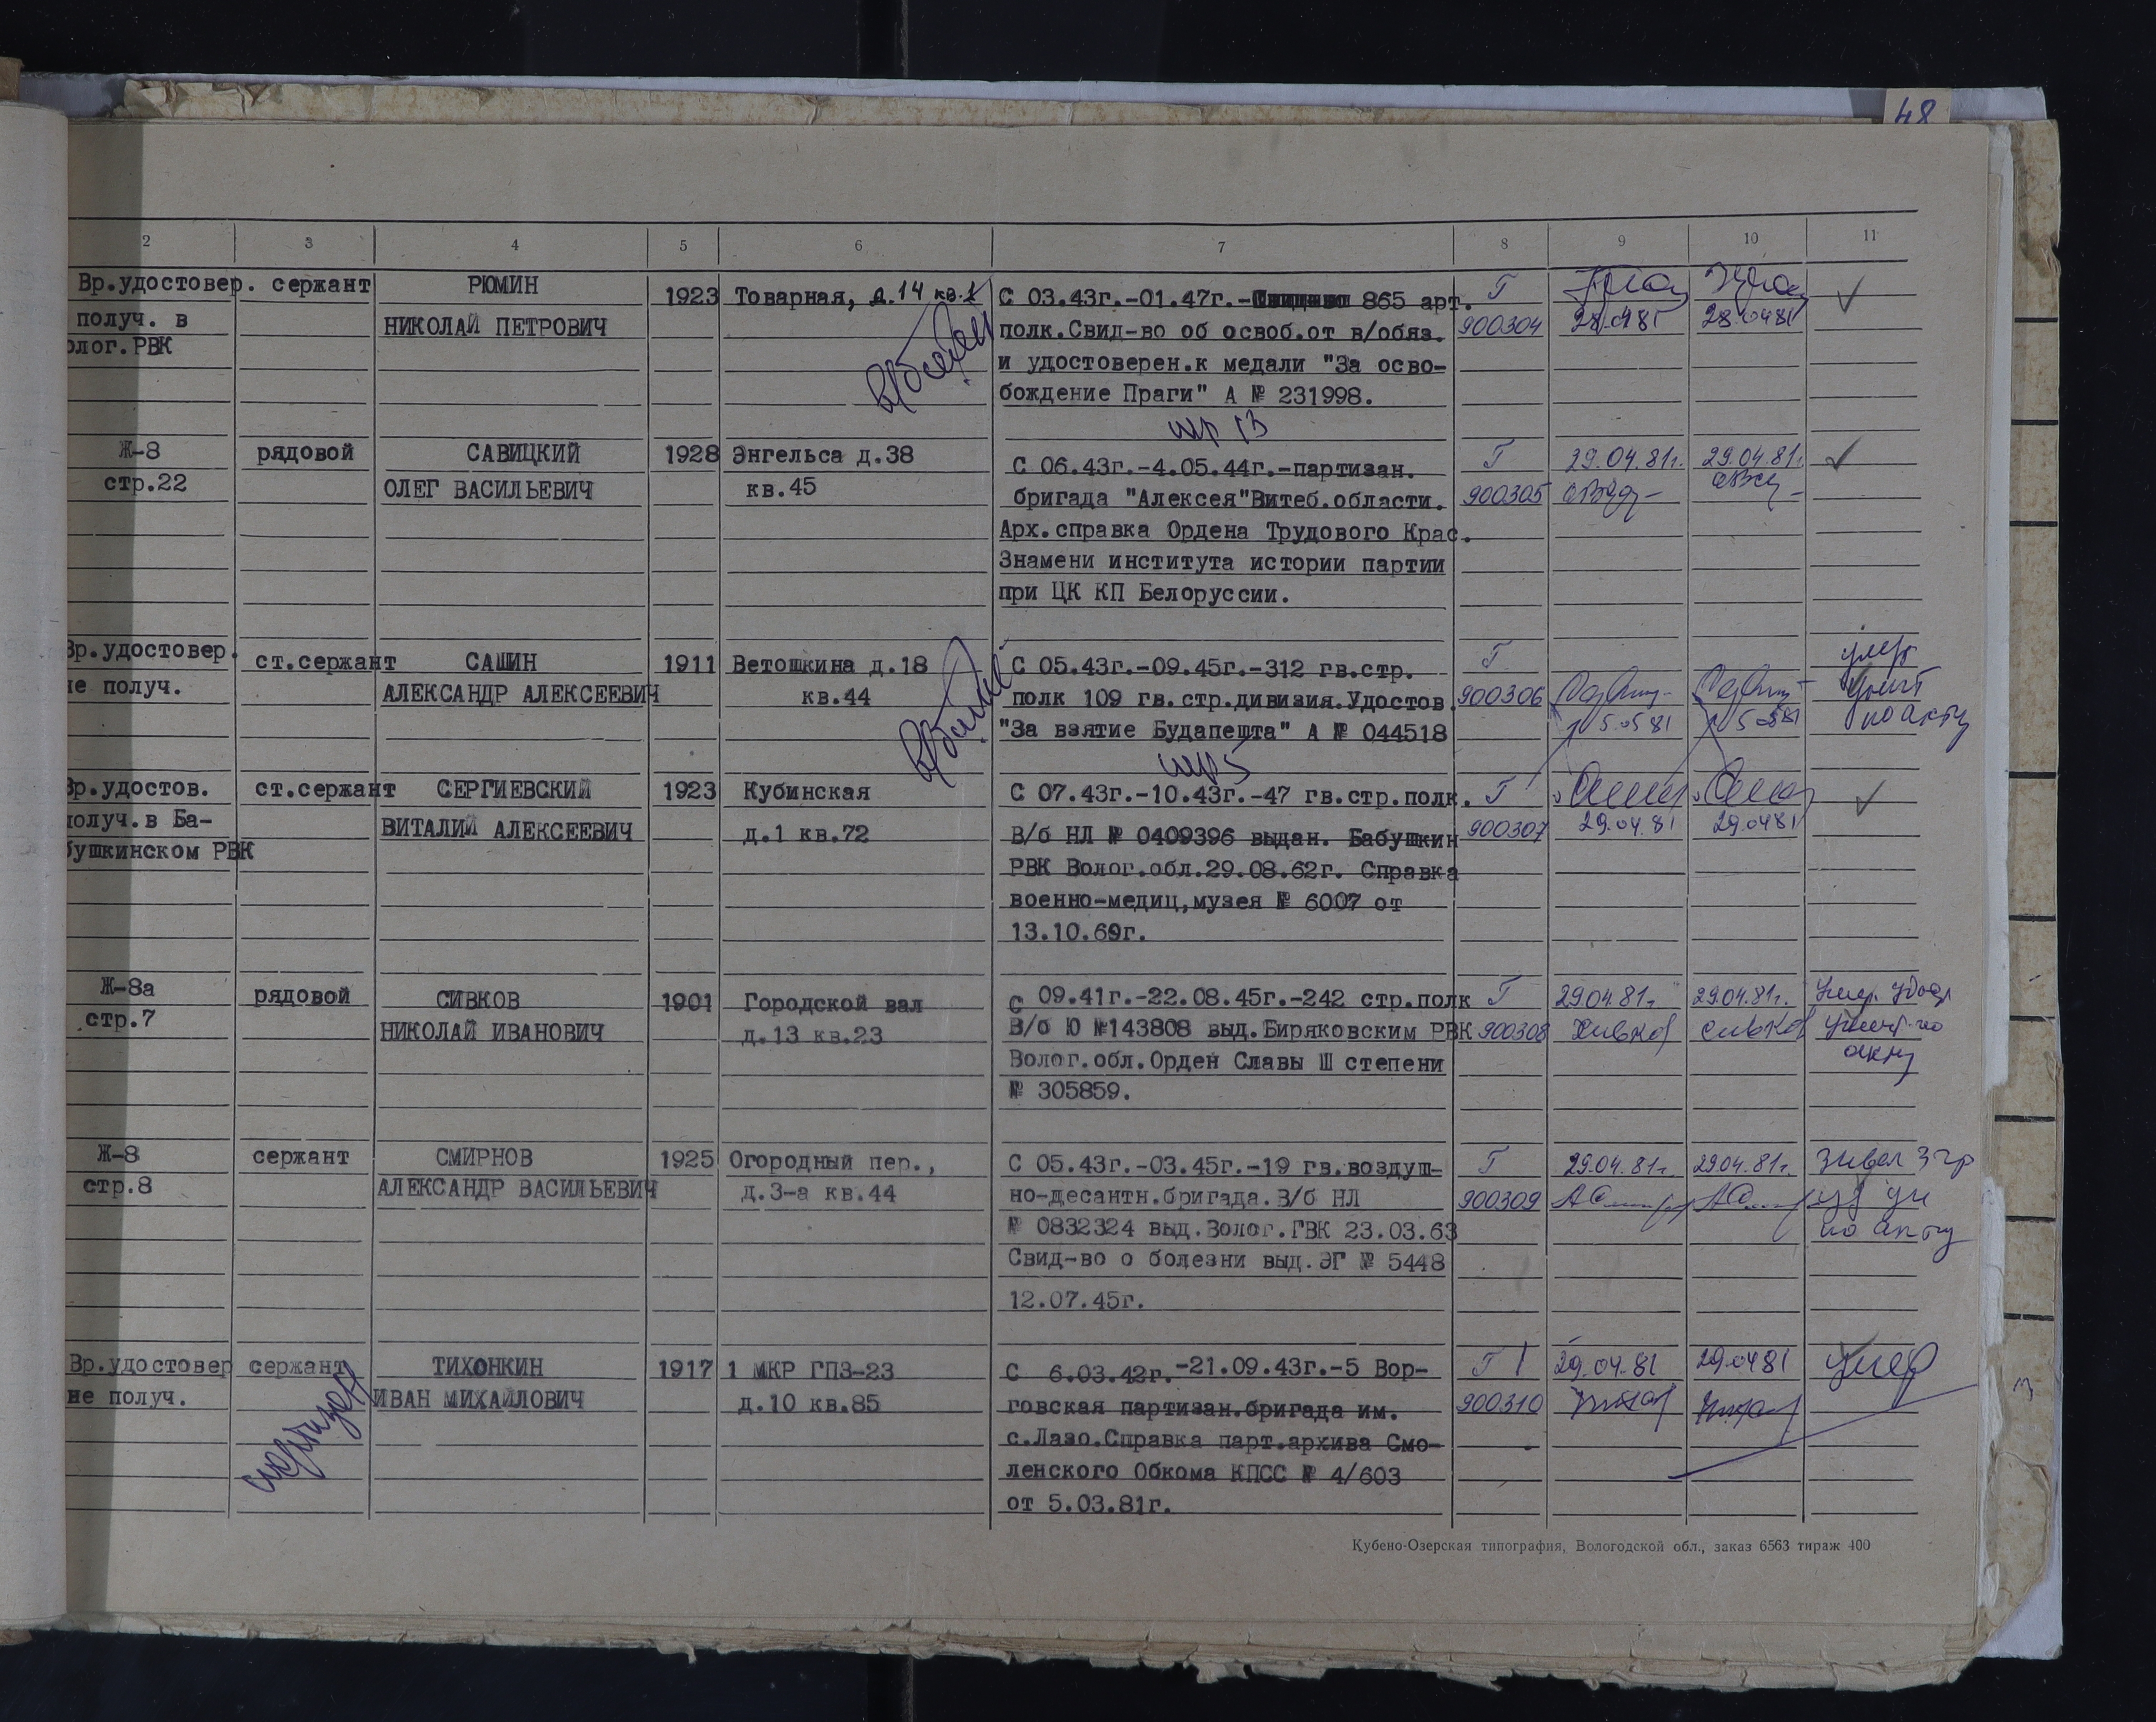 48
2 3 4 5 6 7 8 9 10 11
Вр.удостовер. сержант РЮМИН 1923 Товарная, д.14 кв.1 С 03.43г.-01.47г.- 865 арт. Г
получ. в НИКОЛАЙ ПЕТРОВИЧ полк.Свид-во об освоб.от в/обяз. 900304 28.04 81 28.04 81
олог.РВК и удостоверен.к медали "За осво-
бождение Праги" А № 231998.
Ж-8 рядовой САВИЦКИЙ 1928 Энгельса д.38 С 06.43г.-4.05.44г.-партизан. Г 29.04.81г. 29.04.81г.
стр.22 ОЛЕГ ВАСИЛЬЕВИЧ кв.45 бригада "Алексея"Витеб.области. 900305
Арх.справка Ордена Трудового Крас.
Знамени института истории партии
при ЦК КП Белоруссии.
Вр.удостовер. ст.сержант САШИН 1911 Ветошкина д.18 С 05.43г.-09.45г.-312 гв.стр. Г умер
не получ. АЛЕКСАНДР АЛЕКСЕЕВИЧ кв.44 полк 109 гв.стр.дивизия.Удостов. 900306
"За взятие Будапешта" А № 044518 15.05 81 15.05 81 по акту
Вр.удостов. ст.сержант СЕРГИЕВСКИЙ 1923 Кубинская С 07.43г.-10.43г.-47 гв.стр.полк. Г
получ.в Ба- ВИТАЛИЙ АЛЕКСЕЕВИЧ д.1 кв.72 В/б НЛ № 0409396 выдан. Бабушкин 900307 29.04.81 29.04 81
бушкинском РВК РВК Волог.обл.29.08.62г. Справка
военно-медиц,музея № 6007 от
13.10.69г.
Ж-8а рядовой СИВКОВ 1901 Городской вал С 09.41г.-22.08.45г.-242 стр.полк Г 29.04.81г. 29.04.81г. Умер.
стр.7 НИКОЛАЙ ИВАНОВИЧ д.13 кв.23 В/б Ю №143808 выд.Биряковским РВК 900308 Сивков Сивков по
Волог.обл.Орден Славы Ш степени акту
№ 305859.
Ж-8 сержант СМИРНОВ 1925 Огородный пер., С 05.43г.-03.45г.-19 гв.воздуш- Г 29.04.81г. 29.04.81г.
стр.8 АЛЕКСАНДР ВАСИЛЬЕВИЧ д.3-а кв.44 но-десантн.бригада.В/б НЛ 900309
№ 0832324 выд.Волог.ГВК 23.03.63 по акту
Свид-во о болезни выд.ЭГ № 5448
12.07.45г.
Вр.удостовер сержант ТИХОНКИН 1917 1 МКР ГПЗ-23 С 6.03.42г.-21.09.43г.-5 Вор- Г 29.04.81 29.04 81 умер
не получ. ИВАН МИХАЙЛОВИЧ д.10 кв.85 говская партизан.бригада им. 900310
с.Лазо.Справка парт.архива Смо-
ленского Обкома КПСС № 4/603
от 5.03.81г.
Кубено-Озерская типография, Вологодской обл., заказ 6563 тираж 400